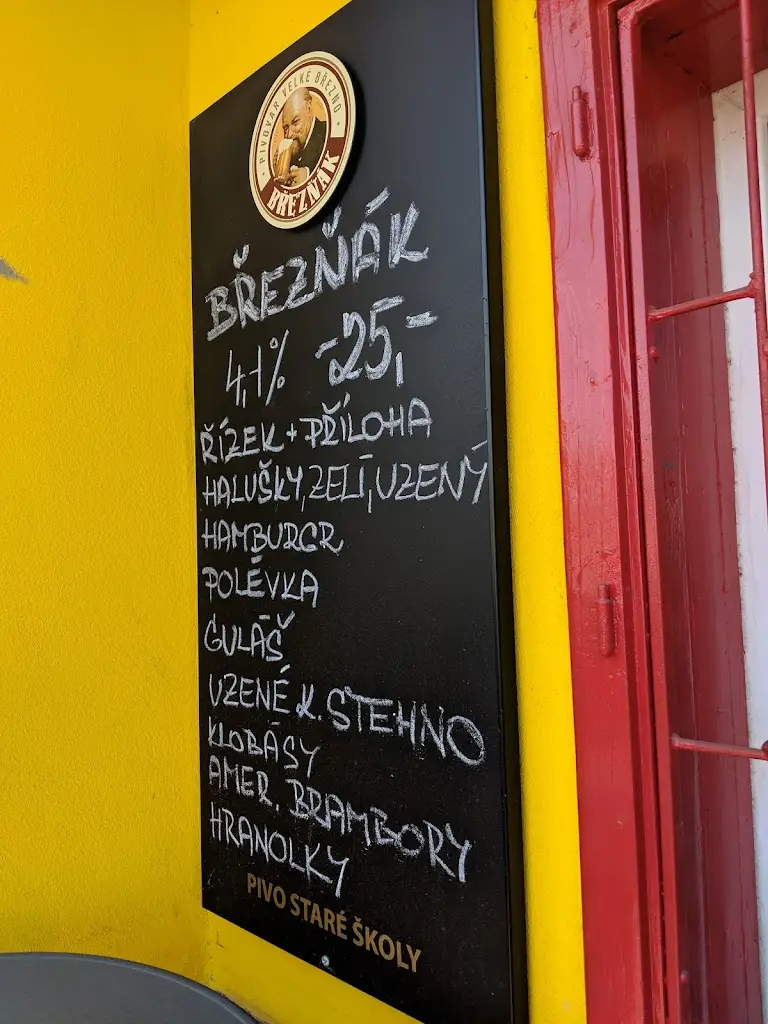 PIVOVAR VELKÉ BŘEZNO
BŘEZŇÁK
BŘEZŇÁK
4,1% -25,-
ŘÍZEK + PŘÍLOHA
HALUŠKY, ZELÍ, UZENÝ
HAMBURGR
POLÉVKA
GULÁŠ
UZENÉ K. STEHNO
KLOBÁSY
AMER. BRAMBORY
HRANOLKY
PIVO STARÉ ŠKOLY